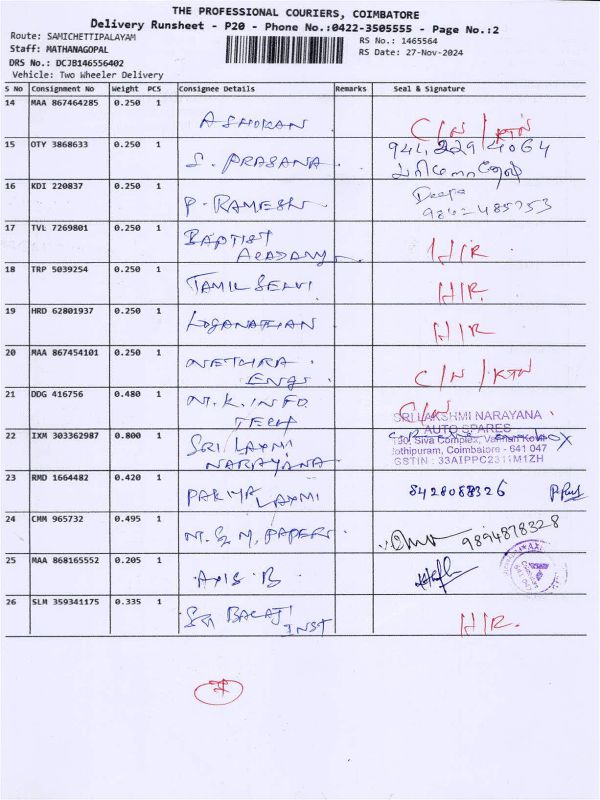 THE PROFESSIONAL COURIERS, COIMBATORE
Delivery Runsheet - P20 - Phone No.:0422-3505555 - Page No.:2
Route: SAMICHETTIPALAYAM
RS No.: 1465564
Staff: MATHANAGOPAL
RS Date: 27-Nov-2024
DRS No.: DCJB146556402
Vehicle: Two Wheeler Delivery
S No Consignment No Weight PCS Consignee Details Remarks Seal & Signature
14 MAA 867464285 0.250 1
ASHOKAN C/N / KTN
15 OTY 3868633 0.250 1
S. PRASANA
16 KDI 220837 0.250 1
P. RAMESH Deepa
17 TVL 7269801 0.250 1
BAPTIST
ACADAMY H/R
18 TRP 5039254 0.250 1
TAMIL SELVI H/R.
19 HRD 62801937 0.250 1
LOGANATHAN H/R
20 MAA 867454101 0.250 1
NETHRA
ENGS. C/N / KTN
21 DDG 416756 0.480 1
M.K. INFO
TECH C/N
SRI LAKSHMI NARAYANA
AUTO SPARES
22 IXM 303362987 0.800 1
SRI LAXMI
NARAYANA
Siva Complex,
Jothipuram, Coimbatore - 641 047
GSTIN : 33AIPPC2311M1ZH
23 RMD 1664482 0.420 1
PAKIYA LAXMI 8428088326
24 CMM 965732 0.495 1
M.S.M. PAPERS 9894878328
25 MAA 868165552 0.205 1
AXIS B
26 SLM 359341175 0.335 1
Sri BALAJI
INST H/R.